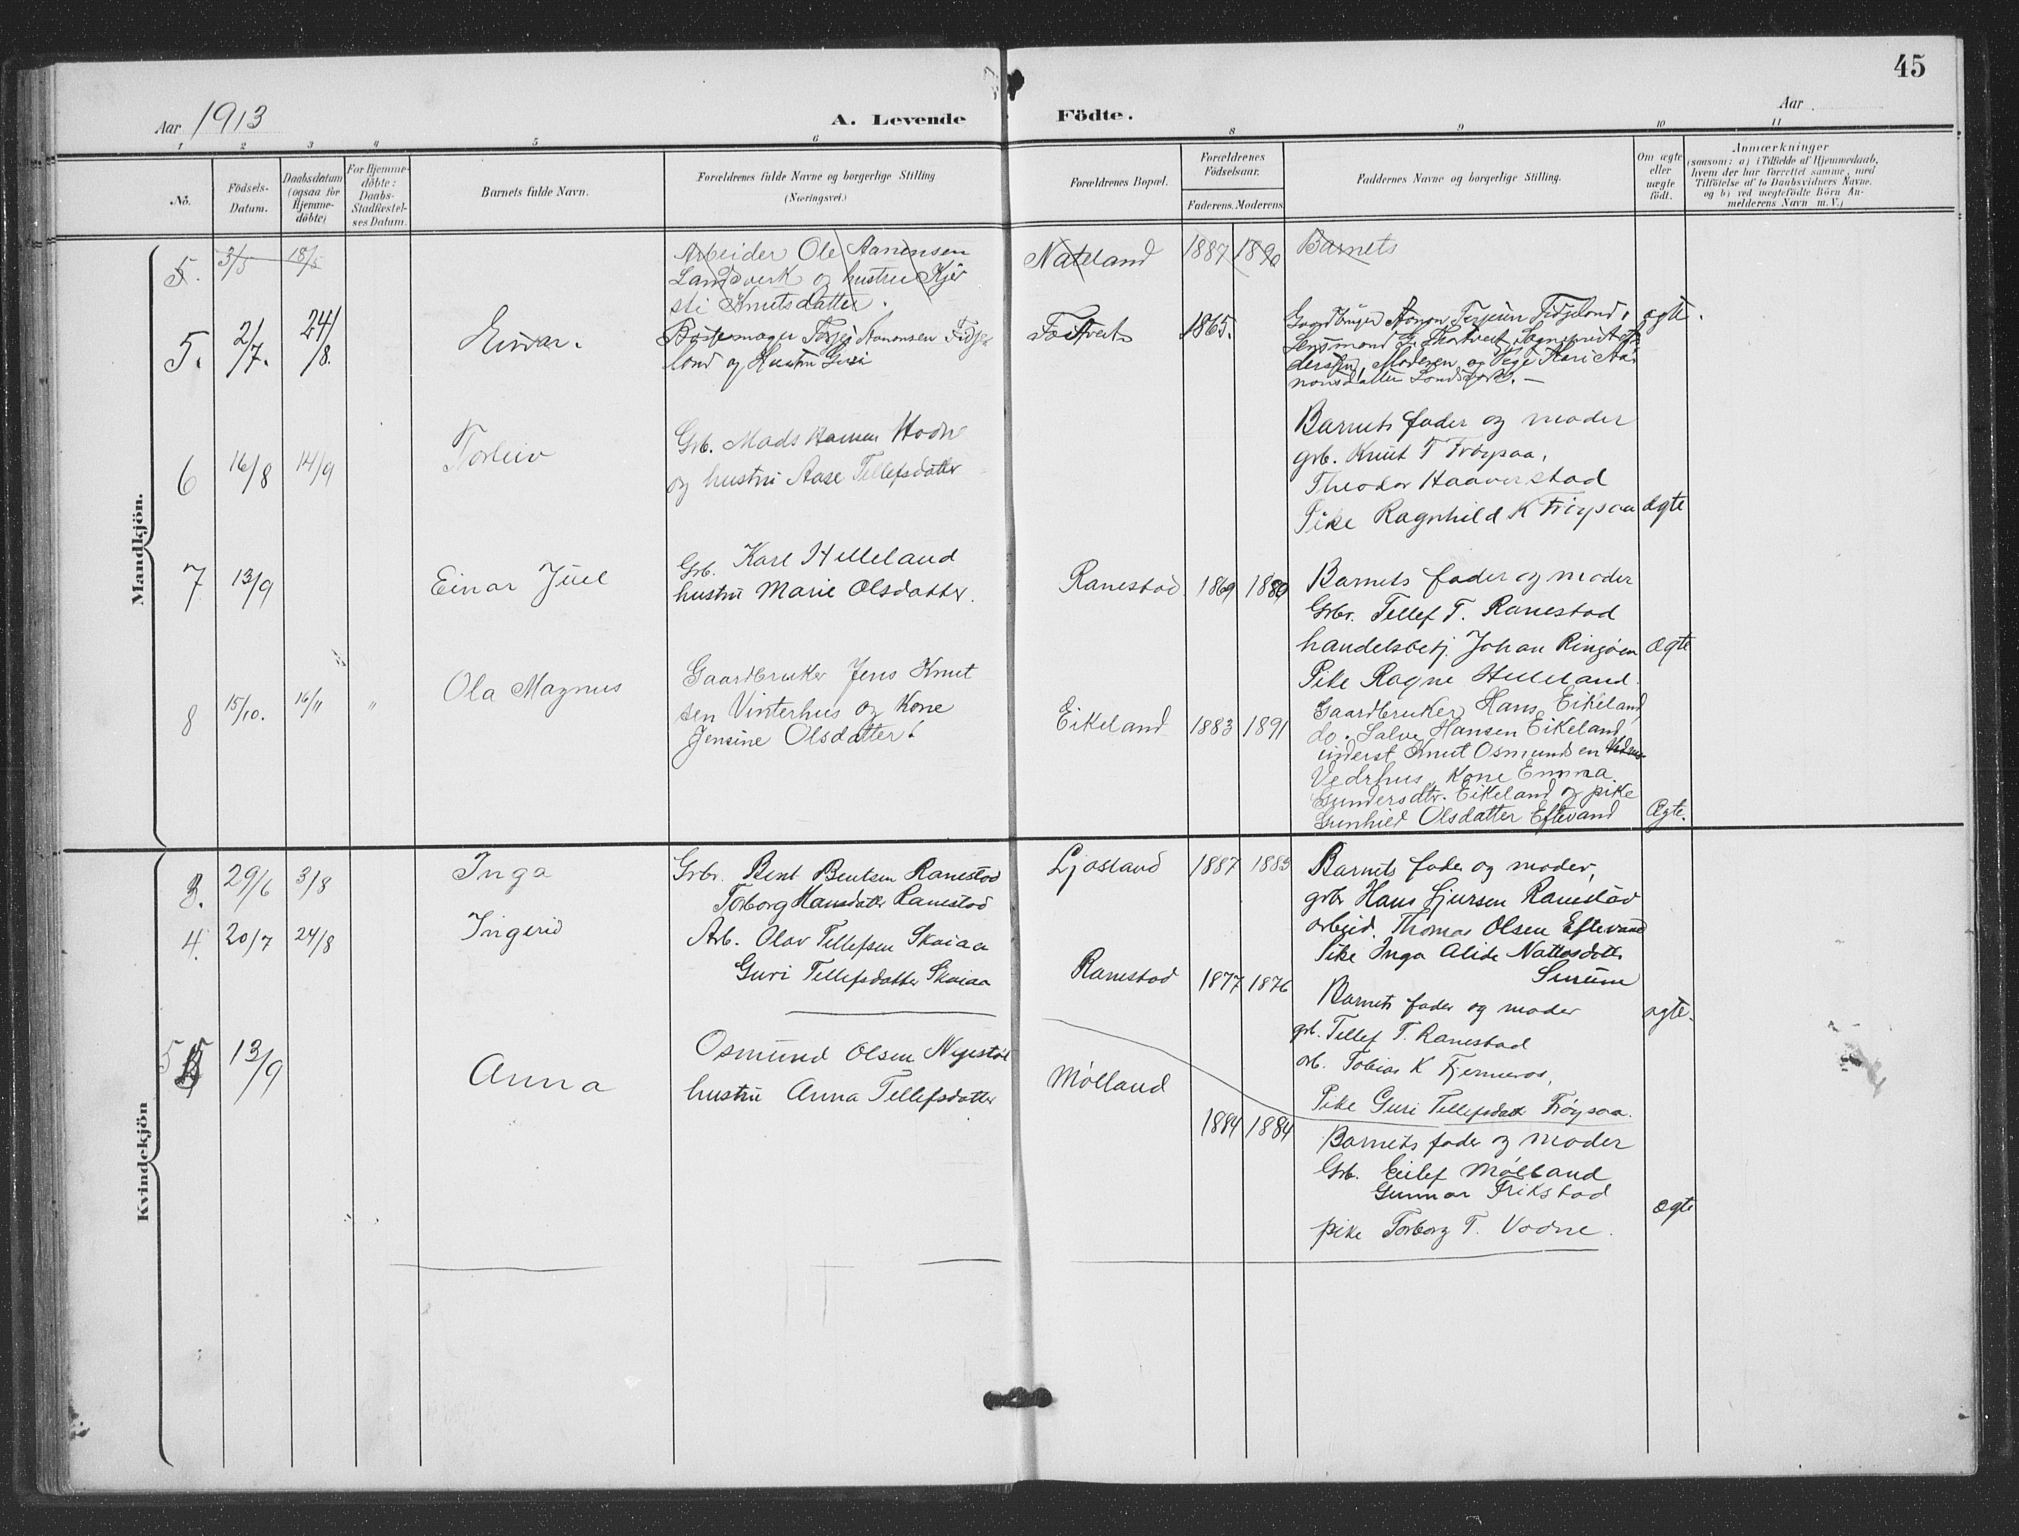 45
Aar 1913
A. Levende Födte.
Aar
1 2 3 4 5 6 8 9 10 11
No.
Födsels-Datum.
Daabsdatum (ogsaa for Hjemmedöbte)
For Hjemmedöbte: Daabs-Stadfæstelses Datum.
Barnets fulde Navn.
Forældrenes fulde Navne og borgerlige Stilling
(Næringsvei.)
Forældrenes Bopæl.
Forældrenes Födselsaar.
Faderens. Moderens
Faddernes Navne og borgerlige Stilling.
Om ægte eller uægte födt.
Anmærkninger
(saasom: a) i Tilfælde af Hjemmedaab,
hvem der har forrettet samme, med
Tilföielse af to Daabsvidners Navne.
og b) ved uægtefödte Börn An-
melderens Navn m. V.)
Mandkjön.
5. 3/5 18/5
Arbeider Ole Aanensen
Landsverk og hustru Kjer
sti Knutsdatter.
Nateland 1887
Barnets
5. 2/7. 24/8.
Einar.
Torjei Aanonsen Fidje
land og Hustru Guri
1865.
Gaardbruger Aanon Terjeien Fidjeland,
Moderen og Pige Kari Aa
nonsdatter
ægte.
6 16/8 14/9
Torleiv
Grb. Mads Hansen Hodne
og hustru Aase Tellefsdatter
Barnets fader og moder
grb. Knut T Frøysaa,
Theodor Haaverstad
Pike Ragnhild K Frøysaa
ægte
7 13/9
Einar Juel
Grb. Karl Helleland
hustru Marie Olsdatter.
Ranestad 1869 1880
Barnets fader og moder
Grbr. Tellef T. Ranestad
handelsbetj. Johan Ringøen
Pike Ragne Helleland.
ægte
8 15/10. 16/11 "
Ola Magnus
Gaardbruker Jens Knut
sen Vinterhus og Kone
Jensine Olsdatter
Eikeland 1883 1891
Gaardbruker Hans Eikeland,
do. Salve Hansen Eikeland,
underst. Knut Osmundsen
Vedrhus, Kone Emma
Gundersdtr. Eikeland og pike
Gunhild Olsdatter Eftevand
Ægte.
Kvindekjön
3. 29/6 3/8
Inga
Grbr. Bent Bentsen Ranestad
Torborg Hansdatter Ranestad
Ljosland 1887 1883
Barnets fader og moder,
grbr Hans Sjursen Ranestad
arbeid. Thomas Olsen Eftevand
Pike Inga Alide
4. 20/7 24/8
Ingerid
Arb. Olav Tellefsen Skaiaa
Guri Tellefsdatter Skaiaa
Ranestad 1877 1876
Barnets fader og moder
grb. Tellef T. Ranestad
arb. Tobias K Fjermeros,
Pike Guri Tellefsdatt Frøysaa.
ægte.
5 13/9
Anna
Osmund Olsen Nygestøl
hustru Anna Tellefsdatter
Mølland
1884 1884
Barnets fader og moder
Grb. Eilef Mølland
Gunnar Frikstad
pike Torborg T. Vodne.
ægte